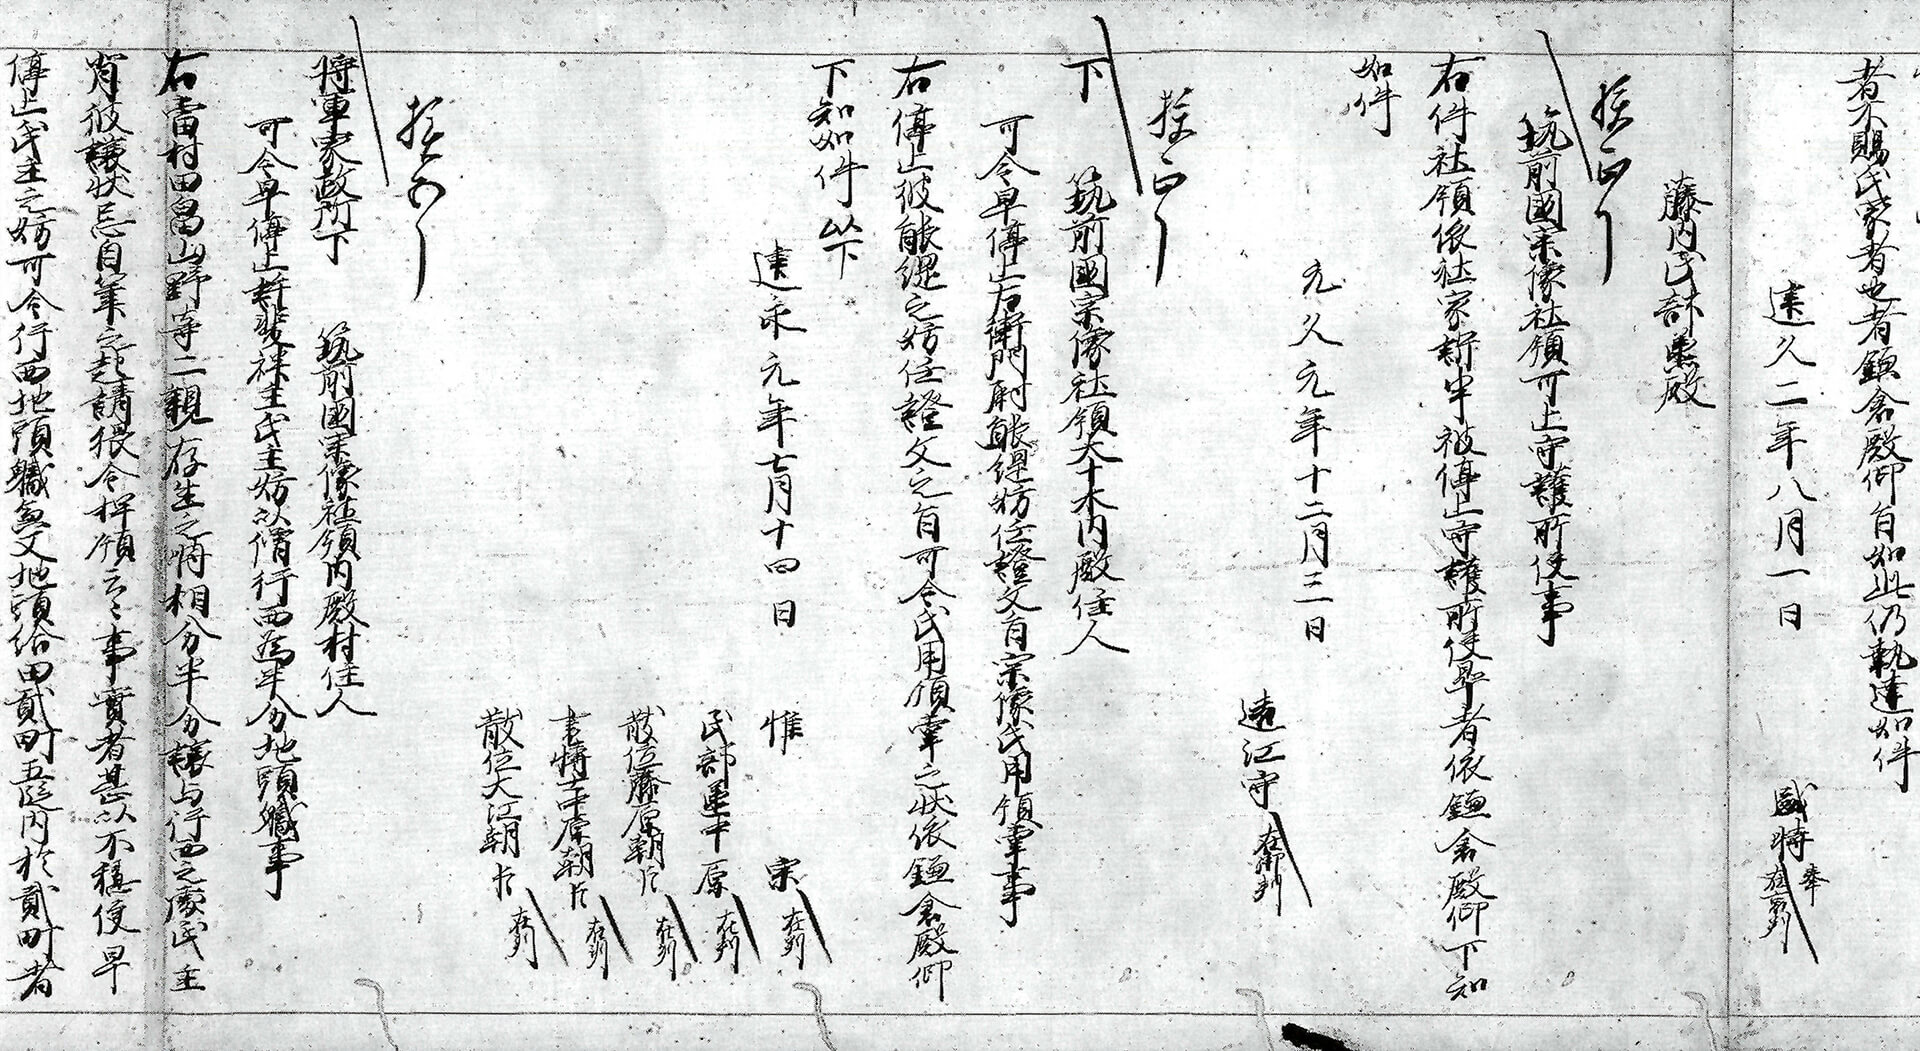 者不賜氏家者也者鎌倉殿仰旨如此仍執達如件
建久二年八月一日
盛時奉在御判
藤内民部丞殿
筑前國宗像社領可止守護所使事
右件社領依社家訴申被停止守護所使畢者依鎌倉殿仰下知
如件
元久元年十二月三日
遠江守在御判
下 筑前國宗像社領大十木内殿住人
可令早停止右衛門尉能綱妨任證文旨宗像氏用領掌事
右停止彼能綱之妨任證文之旨可令氏用領掌之状依鎌倉殿仰
下知如件以下
建永元年七月十四日
惟宗在判
民部丞中原在判
散位藤原朝臣在判
書博士中原朝臣在判
散位大江朝臣在判
将軍家政所下 筑前國宗像社領内殿村住人
可令早停止 氏主妨以僧行西為半分地頭職事
右當村田畠山野等二親存生之時相分半分譲与行西之處氏主
背彼譲状忌自筆之起請猥令押領云々事實者甚以不穏便早
停止氏主之妨可令行西地頭職兼又地頭給田貳町五段内於貳町者